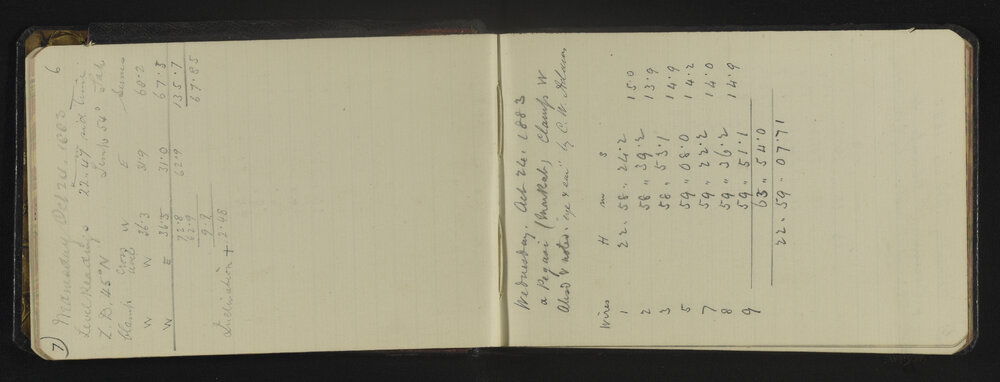 7) Wednesday Oct 24. 1883 6
Level Readings 22.47 sid time
Z.D. 45° N Temp 54° Fah
Clamp Cross end W E Sums
W W 36.3 31.9 68.2
W E 36.5 31.0 67.5
72.8 62.9 135.7
62.9 67.85
9.9
Inclination + 2.48
Wednesday. Oct 24. 1883
α Pegasi (Markab) Clamp W
Obsd & noted. eye & ear by C. W. Adams
Wires H m s
1 22. 58 " 24.2 15.0
2 58 " 39.2 13.9
3 58 " 53.1 14.9
5 59 " 08.0 14.2
7 59 " 22.2 14.0
8 59 " 36.2 14.9
9 59 " 51.1
63 " 54.0
22. 59 " 07.71